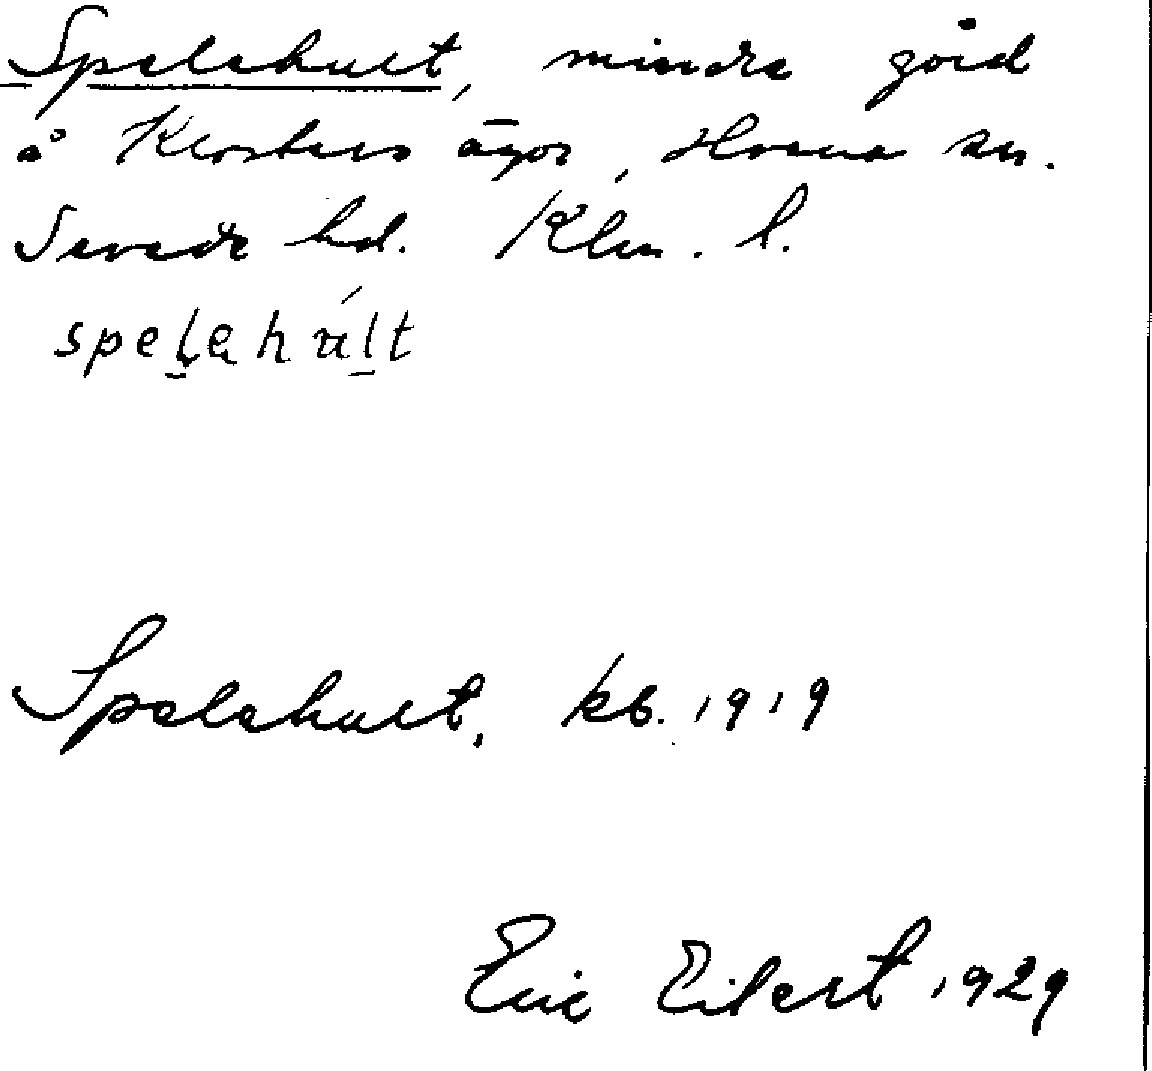 Spelehult, mindre gård
å Klosters ägor, Hvena sn.
Sevede hd. Klm. l.
speḷəhúḷt
Spelehult, kb. 1919
Eric Eilert 1929